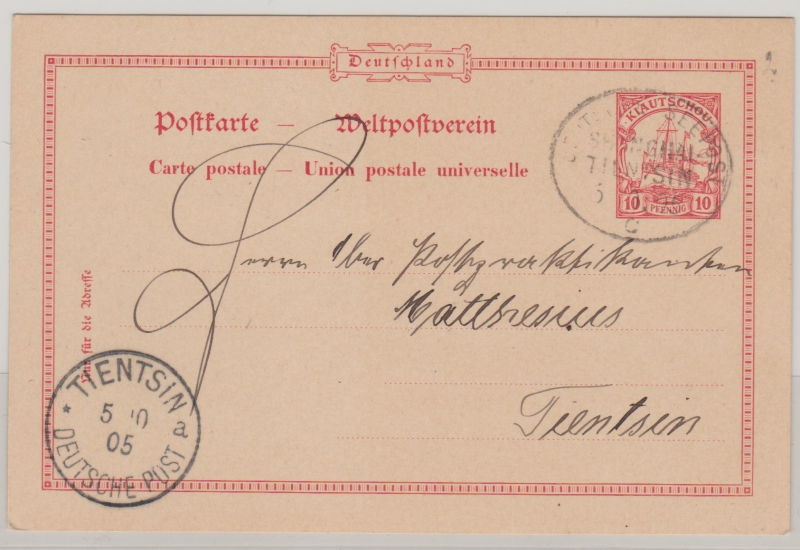 Deutschland
Postkarte — Weltpostverein
Carte postale — Union postale universelle
KIAUTSCHOU
10 PFENNIG 10
SEEPOST
SHANGHAI
TIENTSIN
C
Herrn Ober Postpraktikanten
Matthesius
Tientsin
Nur für die Adresse
* TIENTSIN a
5 10
05
DEUTSCHE POST